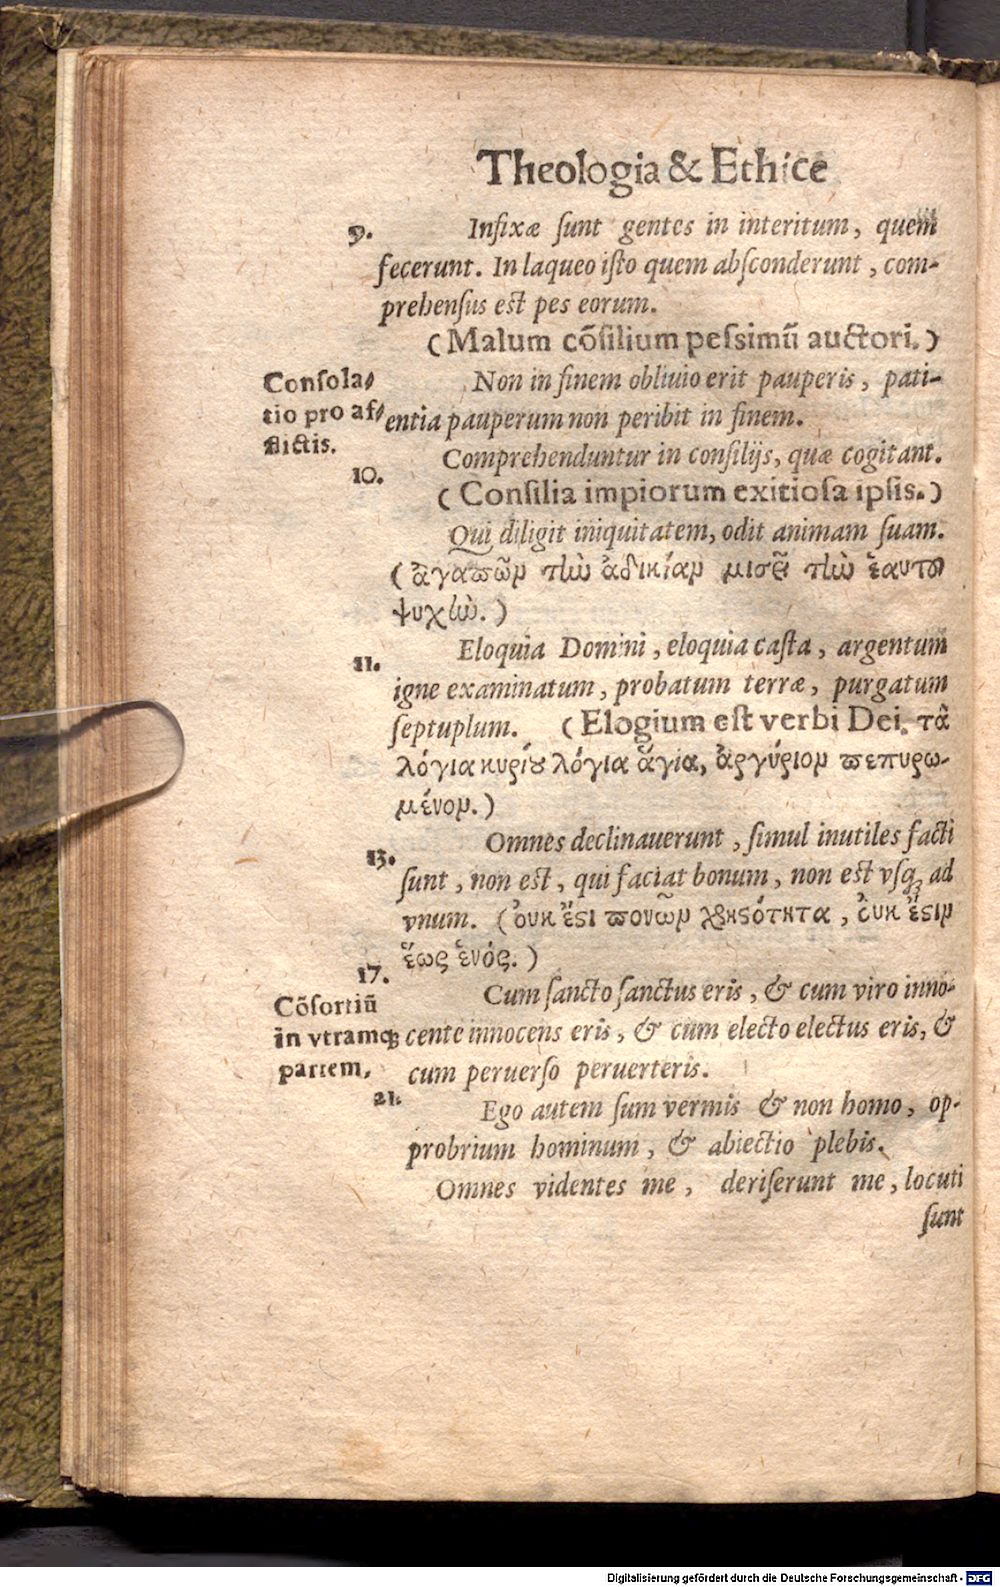 Theologia & Ethice
9.
Infixæ ſunt gentes in interitum, quem
fecerunt. In laqueo iſto quem abſconderunt, com-
prehenſus est pes eorum.
(Malum cōſilium peſsimū auctori.)
Conſola-
tio pro af-
flictis.
Non in finem obliuio erit pauperis, pati-
entia pauperum non peribit in finem.
Comprehenduntur in conſilijs, quæ cogitant.
10.
(Conſilia impiorum exitioſa ipſis.)
Qui diligit iniquitatem, odit animam ſuam.
(ἀγαπῶν τὴν ἀδικίαν μισεῖ τὴν ἑαυτοῦ
ψυχὴν.)
11.
Eloquia Domini, eloquia caſta, argentum
igne examinatum, probatum terræ, purgatum
ſeptuplum. (Elogium eſt verbi Dei. τὰ
λόγια κυρίου λόγια ἅγια, ἀργύριον πεπυρω-
μένον.)
13.
Omnes declinauerunt, ſimul inutiles facti
ſunt, non est, qui faciat bonum, non est vſq; ad
vnum. (ὀυκ ἔστι ποιῶν χρηστότητα, ὀυκ ἔστιν
ἕως ἑνός.)
17.
Cōſortiū
in vtramq;
partem.
Cum ſancto ſanctus eris, & cum viro inno-
cente innocens eris, & cum electo electus eris, &
cum peruerſo peruerteris.
21.
Ego autem ſum vermis & non homo, op-
probrium hominum, & abiectio plebis.
Omnes videntes me, deriſerunt me, locuti
ſunt
Digitalisierung gefördert durch die Deutsche Forschungsgemeinschaft - DFG